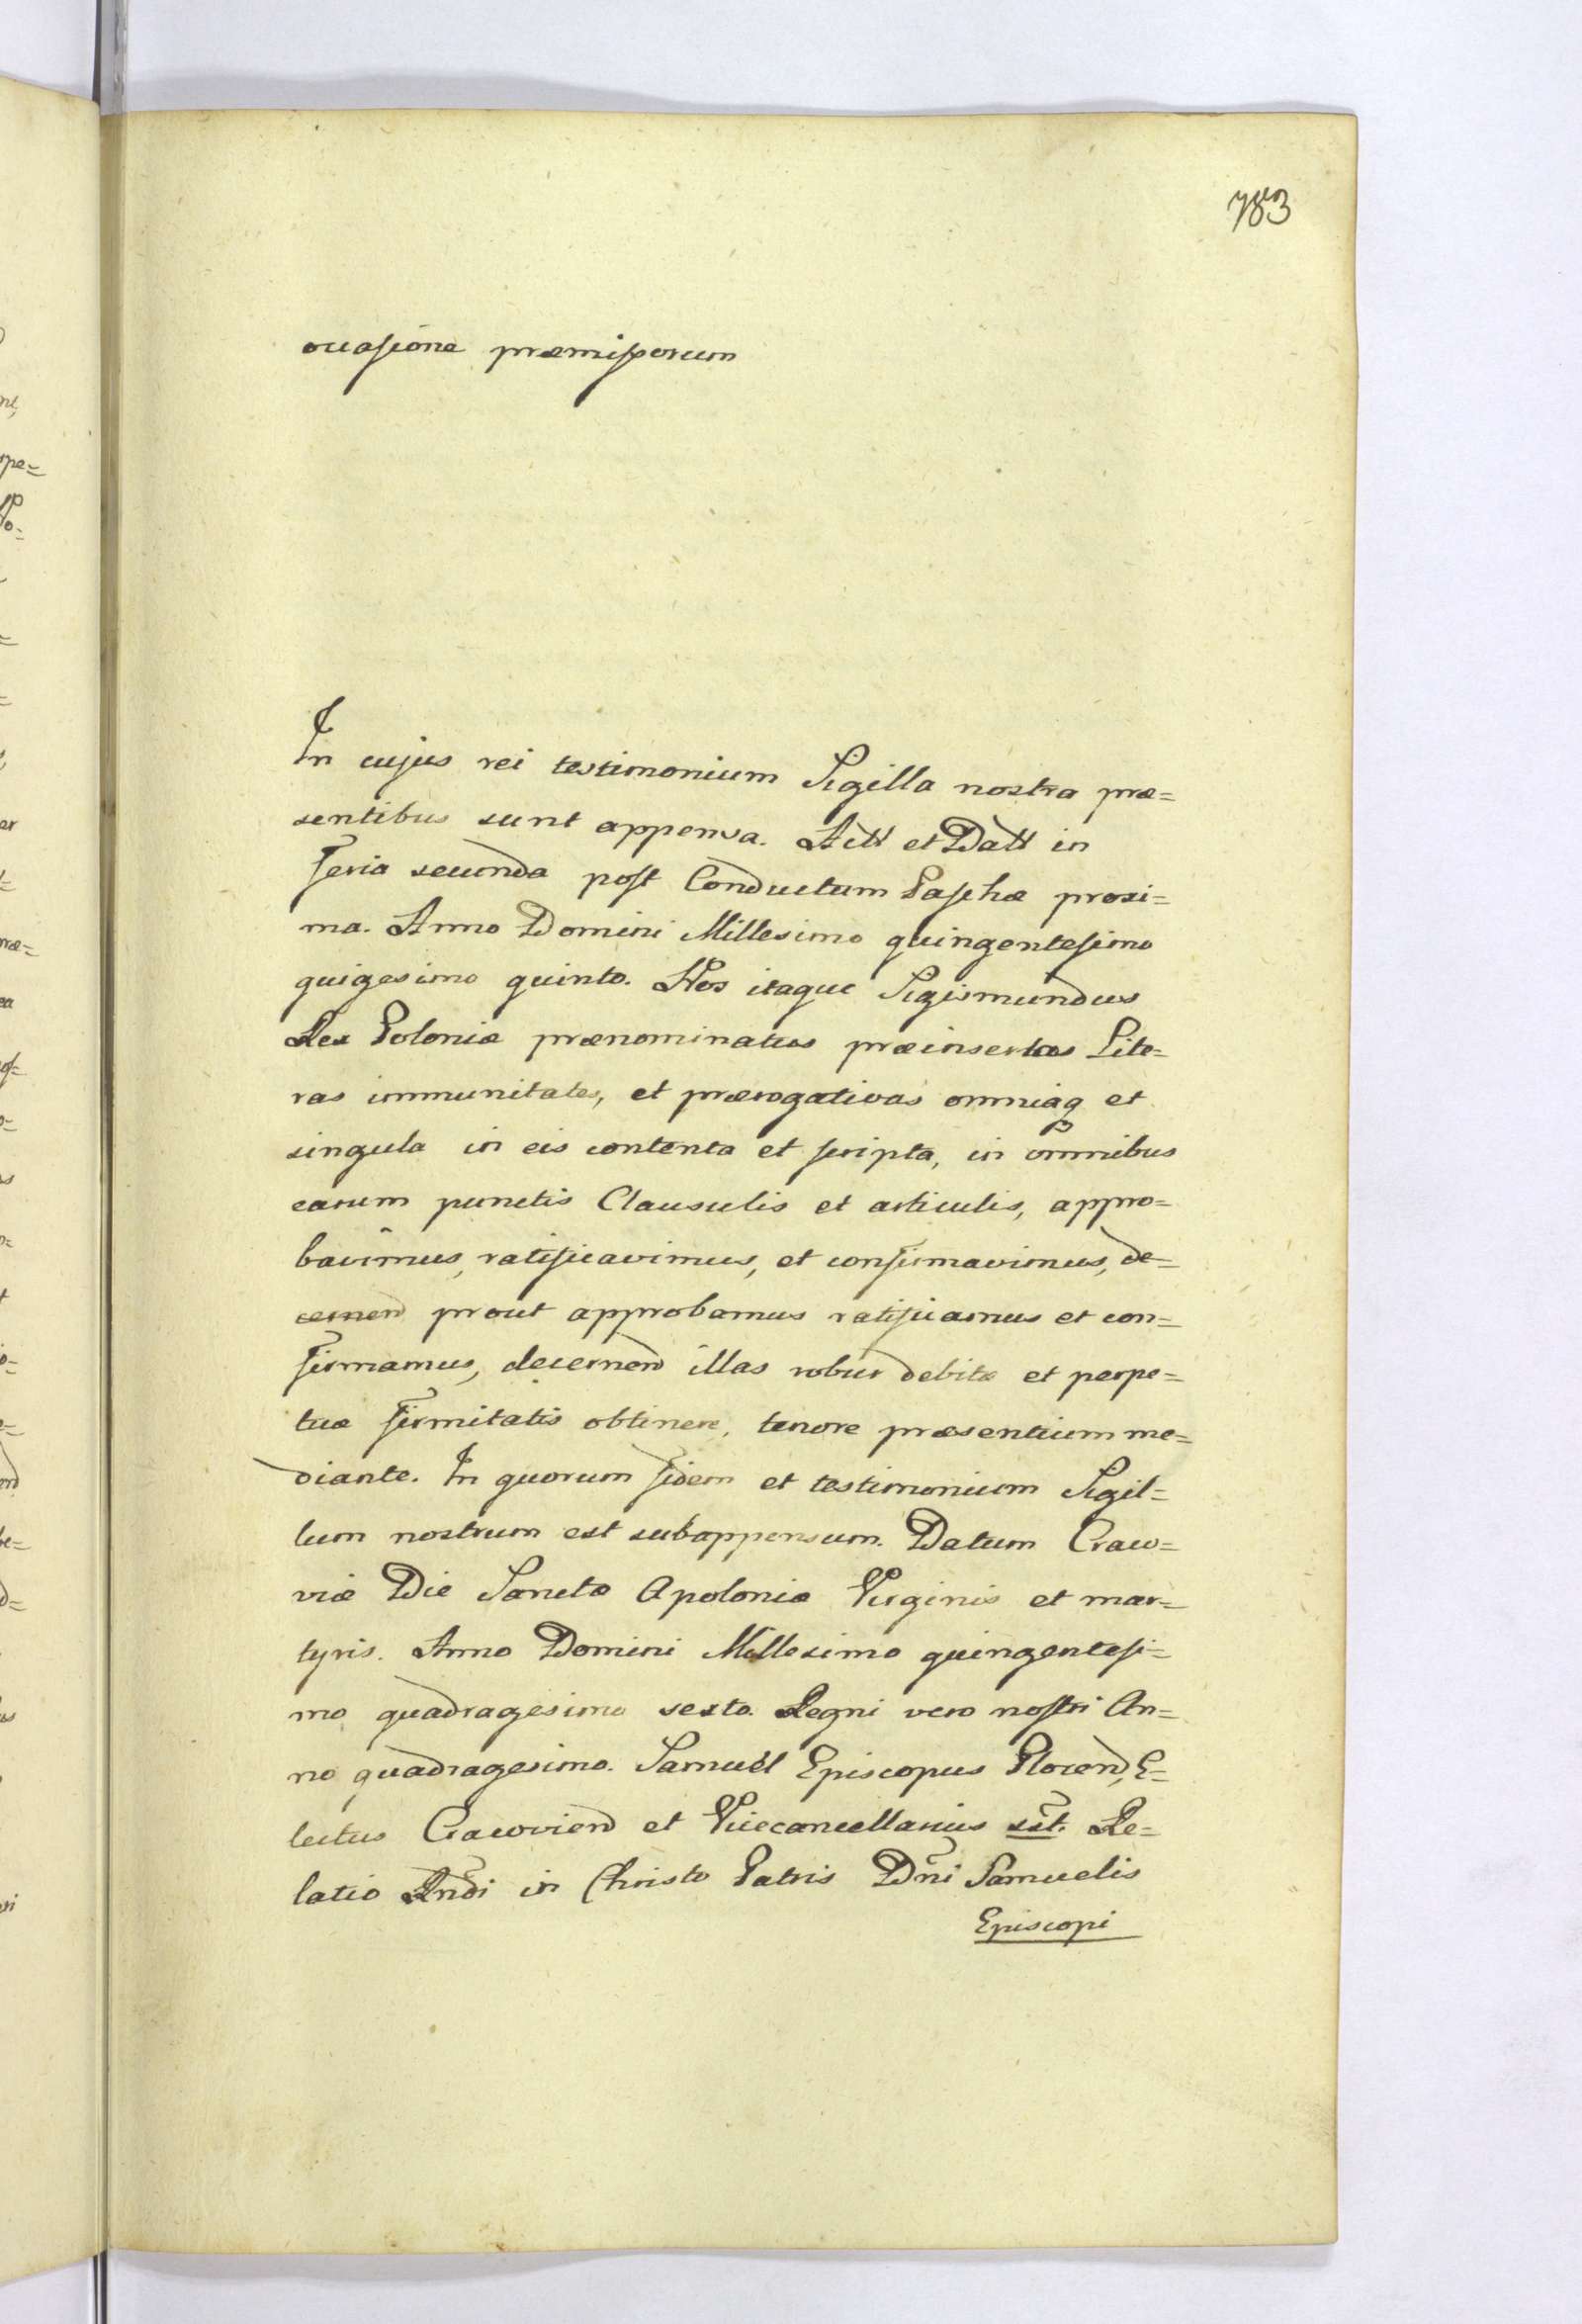 783
occasione præmissorum
In cujus rei testimonium Sigilla nostra præ=
sentibus sunt appensa. Actt et Datt in
feria secunda post Conductum Paschæ proxi=
ma. Anno Domini Millesimo quingentesimo
quigesimo quinto. Nos itaque Sigismundus
Rex Poloniæ prænominatus præinsertas Lite=
ras immunitates, et prærogativas omniaq et
singula in eis contenta et scripta, in omnibus
earum punctis Clausulis et articulis, appro=
bavimus, ratificavimus, et confirmavimus, de=
cernen prout approbamus ratificamus et con=
firmamus, decernen illas robur debitæ et perpe=
tuæ firmitatis obtinere, tenore præsentium me=
diante. In quorum fidem et testimonium Sigil=
lum nostrum est subappensum. Datum Craco=
viæ Die Sanctæ Apoloniæ Virginis et mar=
tyris. Anno Domini Millesimo quingentesi=
mo quadragesimo sexto. Regni vero nostri An=
no quadragesimo. Samuel Episcopus Plocen, E=
lectus Cracovien et Vicecancellarius sst. Re=
latio Rndi in Christo Patris Dni Samuelis
Episcopi